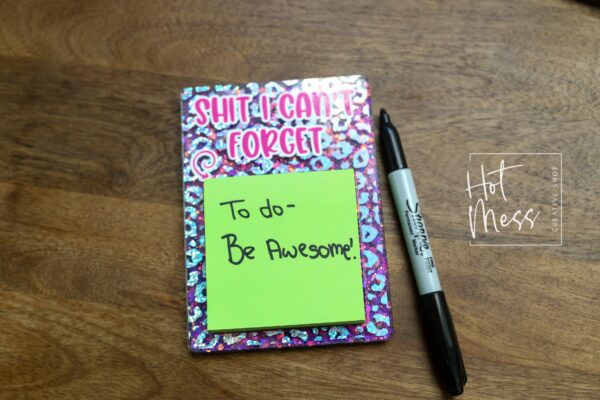 SHIT I CAN'T
FORGET
To do-
Be Awesome!
Sharpie
Hot
Mess
CREATIVE SHOP